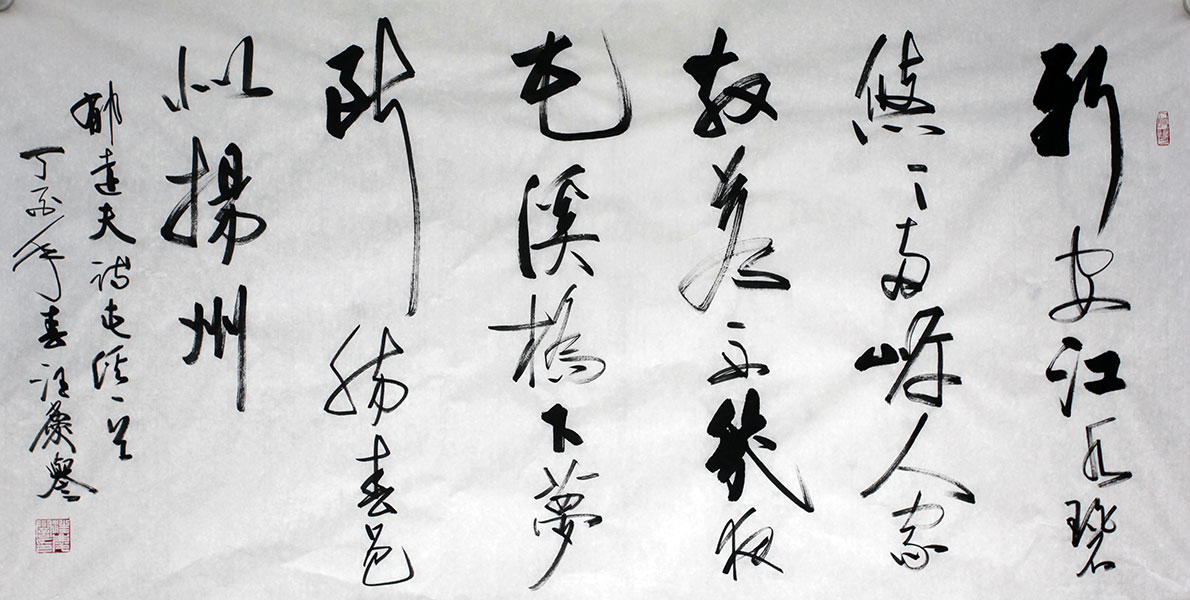 新安江水碧
悠悠两岸人家
散若舟幾夜
屯溪橋下夢
断腸春色
似揚州
郁達夫詩屯溪一首
丁酉年春汪